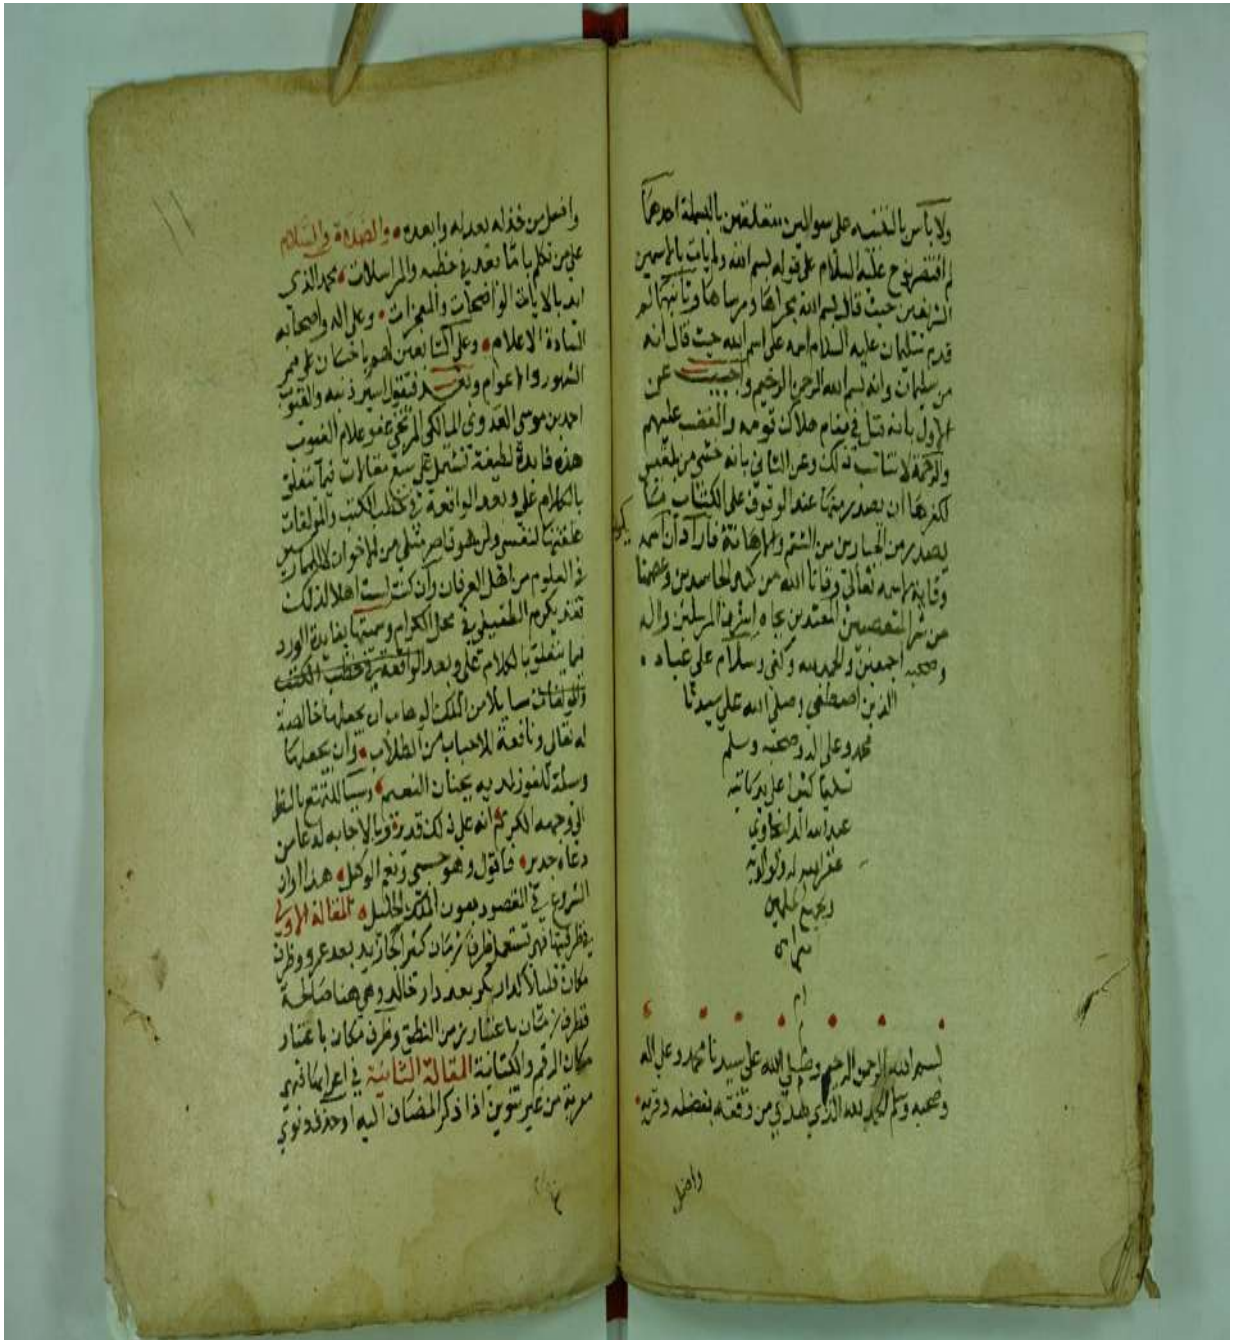 ولا بأس بالتنبيه على سوالين متعلقين بالبسملة احدهما
لم اقتصر نوح عليه السلام على قوله بسم الله ولم يات بالاسمين
الشريفين حيث قال بسم الله مجراها ومرساها وثانيهما لم
قدم سليمان عليه السلام اسمه على اسم الله حيث قال انه
من سليمان وانه بسم الله الرحمن الرحيم واجيب عن
الاول بانه قيل في مقام هلاك قومه والغضب عليهم
والرحمة لا تناسب ذلك وعن الثاني بانه خشي من بلقيس
لكفرها ان يصدر منها عند الوقوف على الكتاب مثل ما
يصدر من الجبارين من الشتم والاهانة فاراد ان اسمه
وقاية لاسمه تعالى وقانا الله من كيد الحاسدين وعصمنا
من شر المتعصبين المعتدين بجاه اشرف المرسلين واله
وصحبه اجمعين والحمد لله وكفى وسلام على عباده
الذين اصطفى وصلى الله على سيدنا
محمد وعلى اله وصحبه وسلم
تسليما كثيرا على يد كاتبه
عبد الله
غفر الله له ولوالديه
وجميع المسلمين
بسم الله الرحمن الرحيم وصلى الله على سيدنا محمد وعلى اله
وصحبه وسلم الحمد لله الذي من وفقه بفضله وقربه
وافضل
وافصل من خذله بعدله وابعده والصلاة والسلام
على من تكلم باما بعد في خطبه والمراسلات محمد الذي
ايد بالايات الواضحات والمعجزات وعلى اله واصحابه
السادة الاعلام وعلى التابعين لهم باحسان على ممر
الشهور والاعوام وبعد فيقول اسير ذنبه والعيوب
احمد بن موسى العدوي المالكي المرتجي عفو علام الغيوب
هذه فايدة لطيفة تشتمل على سبع مقالات فيما يتعلق
بالكلام على وبعد الواقعة في خطب الكتب والمولفات
علقتها لنفسي ولمن هو قاصر مثلي من الاخوان لا للمهارين
في العلوم من اهل العرفان وان كنت لست اهلا لذلك
فقد يكرم الطفيلي في محل الكرام وسميتها بفايدة الورد
فيما يتعلق بالكلام على وبعد الواقعة في خطب الكتب
والمولفات سايلا من الملك الوهاب ان يجعلها خالصة
له تعالى ونافعة للاحباب من الطلاب وان يجعلها
وسيلة للفوز لديه بجنان النعيم وسببا للتمتع بالنظر
الى وجهه الكريم انه على ذلك قدير وبالاجابة لدعا من
دعاه جدير فاقول وهو حسبي ونعم الوكيل هذا اوان
الشروع في المقصود بعون الملك الجليل المقالة الاولى
في ظرفيتها فهي تستعمل ظرف زمان كثيرا كجا زيد بعد عمرو وظرف
مكان قليلا كدار بكر بعد دار خالد وهي هنا صالحة
لظرف زمان باعتبار زمن النطق وظرف مكان باعتبار
مكان الرقم والكتابة المقالة الثانية في اعرابها فهي
معربة من غير تنوين اذا ذكر المضاف اليه او حذف ونوي